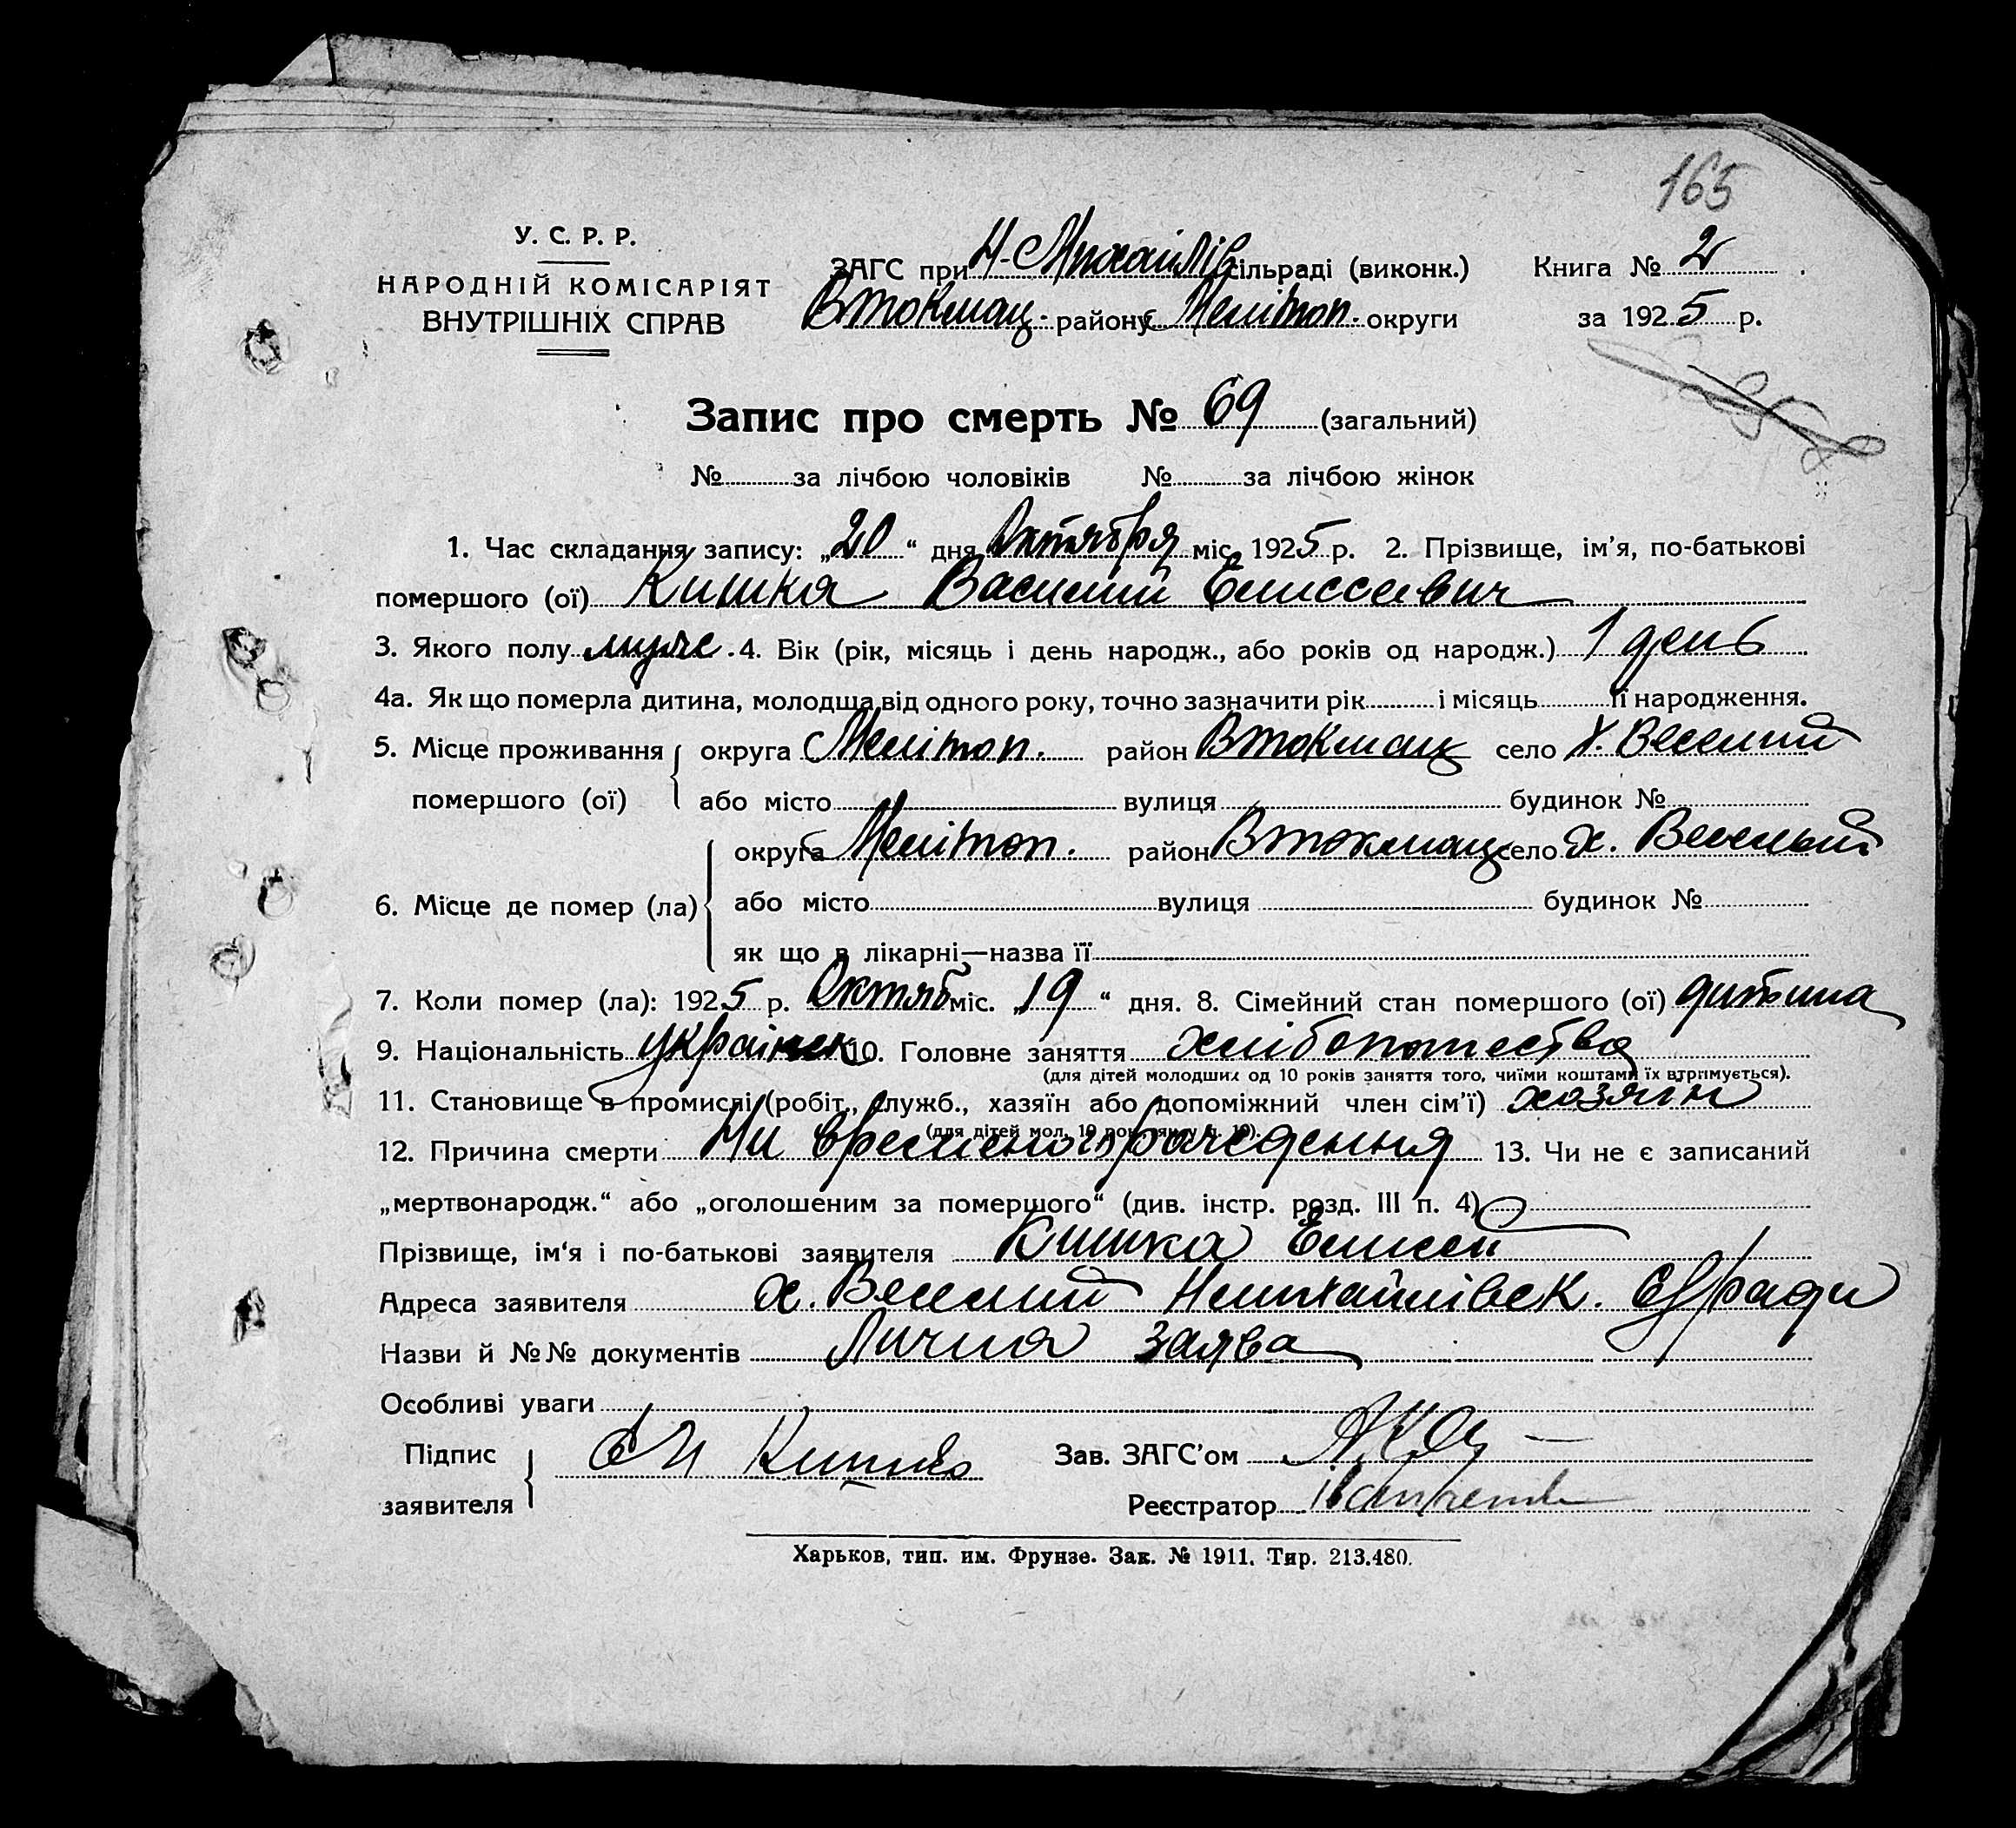 165
У. С. Р. Р.
НАРОДНІЙ КОМІСАРІЯТ
ВНУТРІШНІХ СПРАВ
ЗАГС при Н-Михайлів сільраді (виконк.) Книга № 2
Втокмац. району Мелітоп. округи за 1925 р.
Запис про смерть № 69 (загальний)
№ за лічбою чоловіків № за лічбою жінок
1. Час складання запису: „20“ дня Октября міс. 1925 р. 2. Прізвище, ім'я, по-батькові
помершого (ої) Кишка Василий Елиссеевич
3. Якого полу муже. 4. Вік (рік, місяць і день народж., або років од народж.) 1 день
4а. Як що померла дитина, молодша від одного року, точно зазначити рік і місяць її народження.
5. Місце проживання округа Мелітоп. район Втокмац село Х. Веселий
помершого (ої) або місто вулиця будинок №
округа Мелітоп. район Втокмац село х. Веселый
6. Місце де помер (ла) або місто вулиця будинок №
як що в лікарні—назва її
7. Коли помер (ла): 1925 р. Октяб міс. „19“ дня. 8. Сімейний стан помершого (ої) дитина
9. Національність українец 10. Головне заняття хлібопашество
(для дітей молодших од 10 років заняття того, чиїми коштами їх втримується).
11. Становище в промислі (робіт., служб., хазяїн або допоміжний член сім'ї) хозяїн
(для дітей мол. 10 рок. як у п. 10).
12. Причина смерти Ни временого рождення 13. Чи не є записаний
„мертвонародж.“ або „оголошеним за помершого“ (див. інстр. розд. III п. 4)
Прізвище, ім'я і по-батькові заявителя Кишка Елисей
Адреса заявителя х. Веселий Ново
Назви й №№ документів Лична заява
Особливі уваги
Підпис Кишка Зав. ЗАГС'ом
заявителя Реєстратор
Харьков, тип. им. Фрунзе. Зак. № 1911. Тир. 213.480.